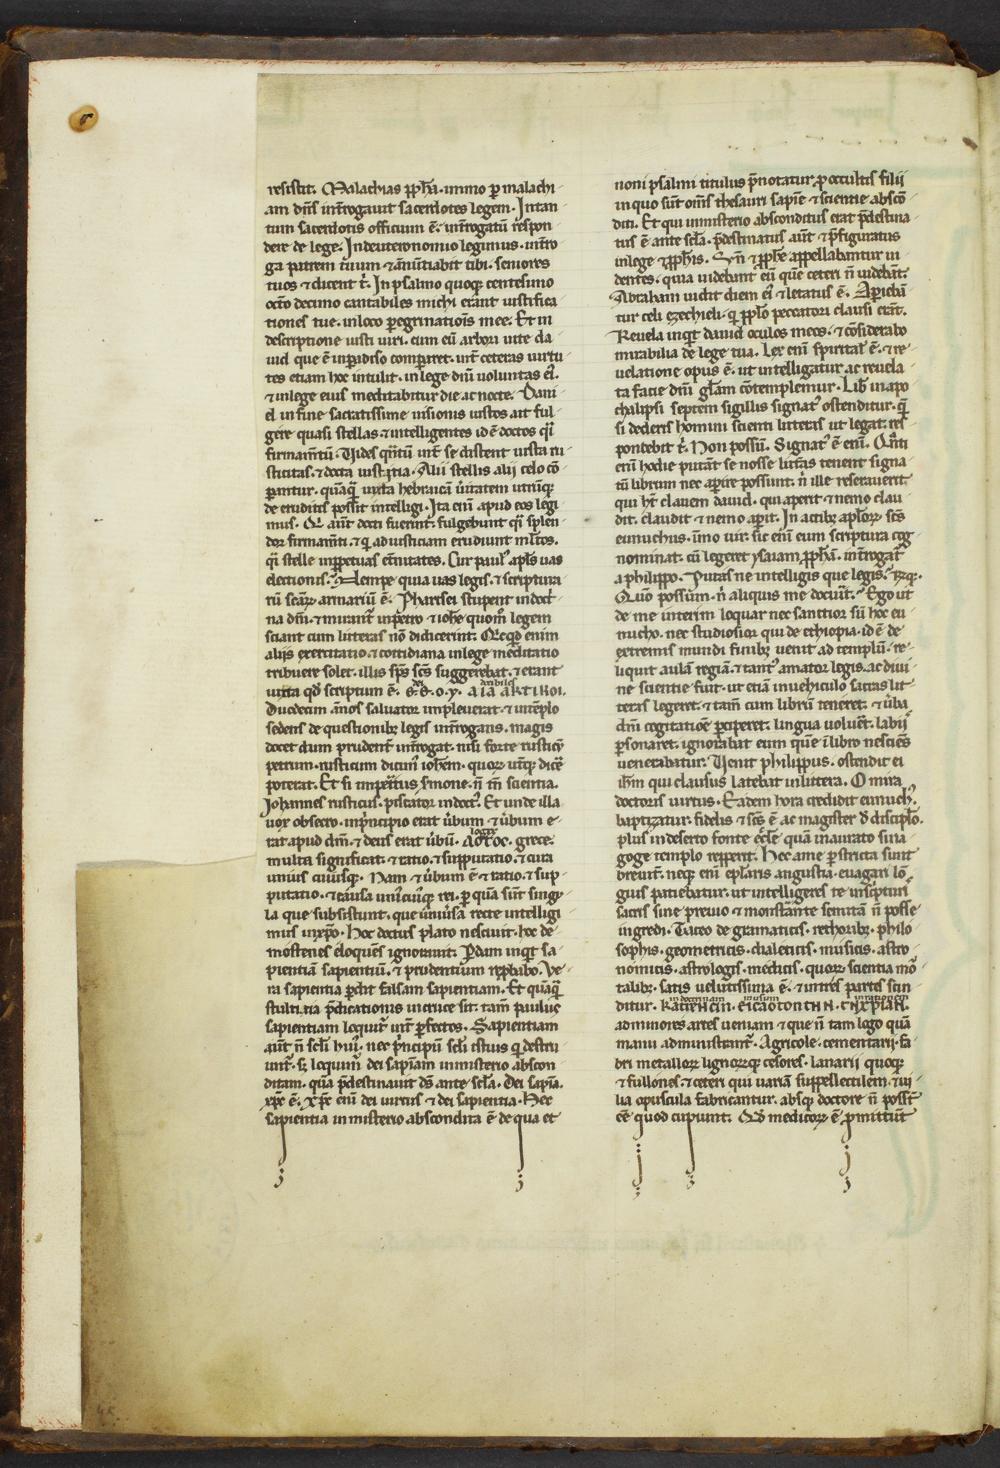 resistit. Malachias ꝓph̄a. immo ꝑ malachi
am dn̄s int̄rogauit sacerdotes legem. In tan
tum sacerdotis officium ē. int̄rogatū respon
dere de lege. In deuteronomio legimus. int̄ro
ga patrem tuum ⁊ ān̄utiabit tibi. seniores
tuos ⁊ dicent t̄. In psalmo quoqꝫ centesimo
octo decimo cantabiles michi erant iustifica
tiones tue. in loco ꝑegrinatiōis mee. Et in
descriptione iusti uiri. cum eū arbori uite da
uid que ē in ꝑadiso compararet. int̄ ceteras uirtu
tes etiam hoc intulit. in lege dn̄i uoluntas eꝰ.
⁊ in lege eius meditabitur die ac nocte. Dani
el in fine sacratissime uisionis iustos ait ful
gere quasi stellas. ⁊ intelligentes id ē doctos qͥ
firmam̄tū. Uides qͣntū int̄ se distent iusta ru
sticitas. ⁊ docta iusticia. Alii stellis alij celo cō
ꝑantur. quāqͣ iuxta hebraicā ūitatem utrūqꝫ
de eruditis possit intelligi. Ita eni apud eos legi
mus. Qͥ aut̄ docti fuerint: fulgebunt qͥ splen
dor firmam̄ti. ⁊ qͥ ad iusticiam erudiunt ml̄tos.
qͥ stelle in ꝑpetuas et̄nitates. Cur paulꝰ apl̄s uas
electionis: Nempe quia uas legis. ⁊ scriptura
rū scārꝝ armariū ē. Pharisei stupent in doct
na dn̄i. ⁊ mirant̄ in petro ⁊ ioh̄e quom̄ legem
sciant cum litteras nō didicerint. Qͥcqͥd enim
aliis exercitatio. ⁊ cottidiana in lege meditatio
tribuere solet. illis sp̄s sc̄s suggerebat. ⁊ erant
iuxta qd̄ scriptum ē. 
Duodecim annos saluator impleuerat. ⁊ in tēplo
sedens de questionibꝫ legis int̄rogans. magis
docet dum prudent̄ int̄rogat. nisi forte rusticū
petrum. rusticum dicimꝰ ioh̄em. quorꝝ ut̄qꝫ dice
poterat. Et si imperitus s̄mone. n̄ tn̄ scientia.
Johannes rusticus. piscator indoctꝰ. Et unde illa
uox obsecro. in pͥncipio erat ūbum ⁊ ūbum e
rat apud dm̄. ⁊ deus erat ūbū. ΛΟΓΟC. grece.
multa significat. ⁊ ratio. ⁊ supputatio. ⁊ cura
unius cuiusqꝫ. Nam ⁊ ūbum ē ⁊ ratio. ⁊ sup
putatio. ⁊ causa uniꝰcuiusqꝫ rei. ꝑ quā sūt singu
la que subsistunt. que uniūsa recte intelligi
mus in xp̄o. Hoc doctus plato nesciuit. hoc de
mostenes eloquēs ignorauit. Pdam inqͥt sa
pientiā sapientiū. ⁊ prudentium reprobabo. Ve
ra sapientia ꝑdet falsam sapientiam. Et quāqͣ
stulticia p̄dicationis in cruce sit. tam̄ paulus
sapientiam loquit̄ int̄ ꝑfectos. Sapientiam
aut̄ n̄ scl̄i huiꝰ. nec pͥncipū scl̄i istius qͥ destru
unt̄. sꝫ loquimꝰ dei sapiam in misterio abscon
ditam. quā p̄destinauit ds̄ ante scl̄a. Dei sapīa.
xp̄c ē. xp̄c eni dei uirtus ⁊ dei sapientia. Hec
sapientia in misterio abscondita ē de qua et
noni psalmi titulus p̄notatur. ꝓ occultis filii
in quo sūt om̄s thesauri sapīe ⁊ scientie absco
diti. Et qui in misterio absconditus erat p̄destina
tus ē ante scl̄a. p̄destinatus aūt ⁊ p̄figuratus
in lege ⁊ ꝓph̄is. Vn̄ ⁊ ꝓph̄e appellabantur ui
dentes. quia uidebant eū quē ceteri n̄ uidebāt.
Abraham uidit diem eiꝰ ⁊ letatus ē. Aꝑieba
tur celi ezechieli. qͥ ppl̄o peccatori clausi erāt.
Reuela inqͥt dauid oculos meos. ⁊ cōsiderabo
mirabilia de lege tua. Lex eni spiritalꝰ ē. ⁊ re
uelatione opus ē. ut intelligatur. ac reuela
ta facie dn̄i gl̄am cōtemplemur. Lib̄ in apo
chalipsi septem sigillis signatꝰ ostenditur. qͥ
si dederis homini scienti litteras ut legat: res
pondebit t̄. Non possū. Signatꝰ ē eni. Qͣnti
eni hodie putāt se nosse litt̄as tenent signa
tū librum nec aꝑire possunt. nͥ ille reserauerit
qui ht̄ clauem dauid. qui aperit ⁊ nemo clau
dit. claudit ⁊ nemo aꝑit. In actibꝫ apl̄orꝝ sc̄s
eunuchus. immo uir. sic eni eum scriptura cog
nominat. cū legeret ysaiam ꝓph̄a. int̄rogatꝰ
a philippo. Putas ne intelligis que legis: 
Quō possum. nͥ aliquis me docūit: Ego ut
de me interim loquar nec sanctior sū hoc eu
nucho. nec studiosior. qui de ethiopia. id ē de
extremis mundi finibꝫ uenit ad templū. re
liquit aulā regiā. ⁊ tantꝰ amator legis. ac diui
ne scientie fuit. ut etiā in uehiculo sacras lit
teras legeret. ⁊ tam̄ cum librū teneret. ⁊ ūba
dn̄i cogitatiōe ꝑciperet. lingua voluēt. labiis
ꝑsonaret. ignorabat eum quē i libro nesciēs
uenerabatur. Uenit philippus. ostendit ei
ih̄m qui clausus latebat in littera. O mira
doctoris uirtus. Eadem hora credidit eunuchꝰ.
baptizatur. fidelis ⁊ sc̄s ē ac magister d̄ discipl̄o.
plus in deserto fonte ecc̄le quā in aurato sina
goge templo repperit. Hec a me ꝑstricta sunt
breuit̄. neqꝫ eni epl̄aris angustia euagari lō
gius patiebatur. ut intelligeres te in sc̄pturis
sacris sine preuio ⁊ monstrante semitā n̄ posse
ingredi. Taceo de gramaticis. rethoribꝫ. philo
sophis. geometricis. dialeticis. musicis. astro
nomicis. astrologis. medicis. quorꝝ scientia mo
talibꝫ satis utilissima ē. ⁊ in tres partes scin
ditur. 
ad minores artes ueniam ⁊ que n̄ tam logo quā
manu administrant̄. Agricole. cementarij. fa
bri metallorꝝ lignorꝝqꝫ cesores. lanarii quoqꝫ
⁊ fullones. ⁊ ceteri qui uariā suppellectilem ⁊ ui
lia opuscula fabricantur. absqꝫ doctore n̄ possūt
eē quod cupiunt. Qͩ medicorꝝ ē ꝓmittūt